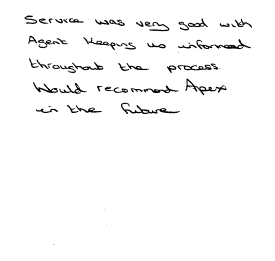 Service was very good with
Agent keeping us informed
throughout the process
Would recommend Apex
in the future